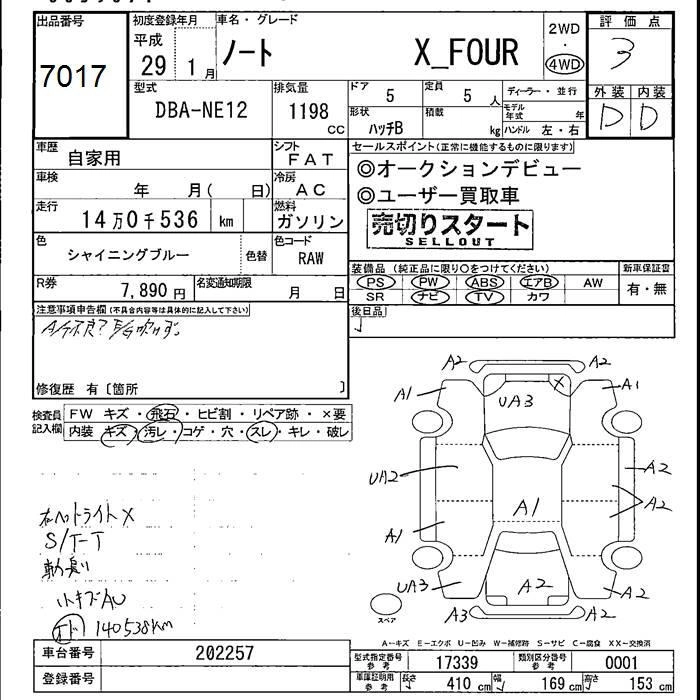 出品番号
7017
初度登録年月
平成
29 1 月
車名・グレード
ノート X_FOUR
2WD
・
4WD
評価点
3
型式
DBA-NE12
排気量
1198
CC
ドア
5
定員
5 人
ディーラー・並行
形状
ハッチB
積載
kg
モデル年式 年
ハンドル 左・右
外装 内装
D D
車歴
自家用
シフト
FAT
車検
年 月( 日)
冷房
AC
走行
14万0千536 km
燃料
ガソリン
色
シャイニングブルー
色替
色コード
RAW
R券
7,890 円
名変通知期限
月 日
セールスポイント(正常に機能するものに限ります)
◎オークションデビュー
◎ユーザー買取車
売切りスタート
SELLOUT
装備品 (純正品に限り○をつけてください)
PS PW ABS エアB AW
SR ナビ TV カワ
新車保証書
有・無
後日品
注意事項申告欄(不具合内容等は具体的に記入して下さい)
修復歴 有〔箇所 〕
検査員記入欄
FW キズ・飛石・ヒビ割・リペア跡・×要
内装 キズ・汚レ・コゲ・穴・スレ・キレ・破レ
右ヘッドライト×
S/T-T
臭い
小キズAU
140538km
A2 A2
A1 A1
UA3
UA2
A2
A1
A2
A1
UA3
A2
A2
A3 A2
スペア
A-キズ E-エクボ U-凹み W-補修跡 S-サビ C-腐食 XX-交換済
車台番号
202257
登録番号
型式指定番号参考
17339
類別区分番号参考
0001
車庫証明用参考
長さ 410 cm 幅 169 cm 高さ 153 cm